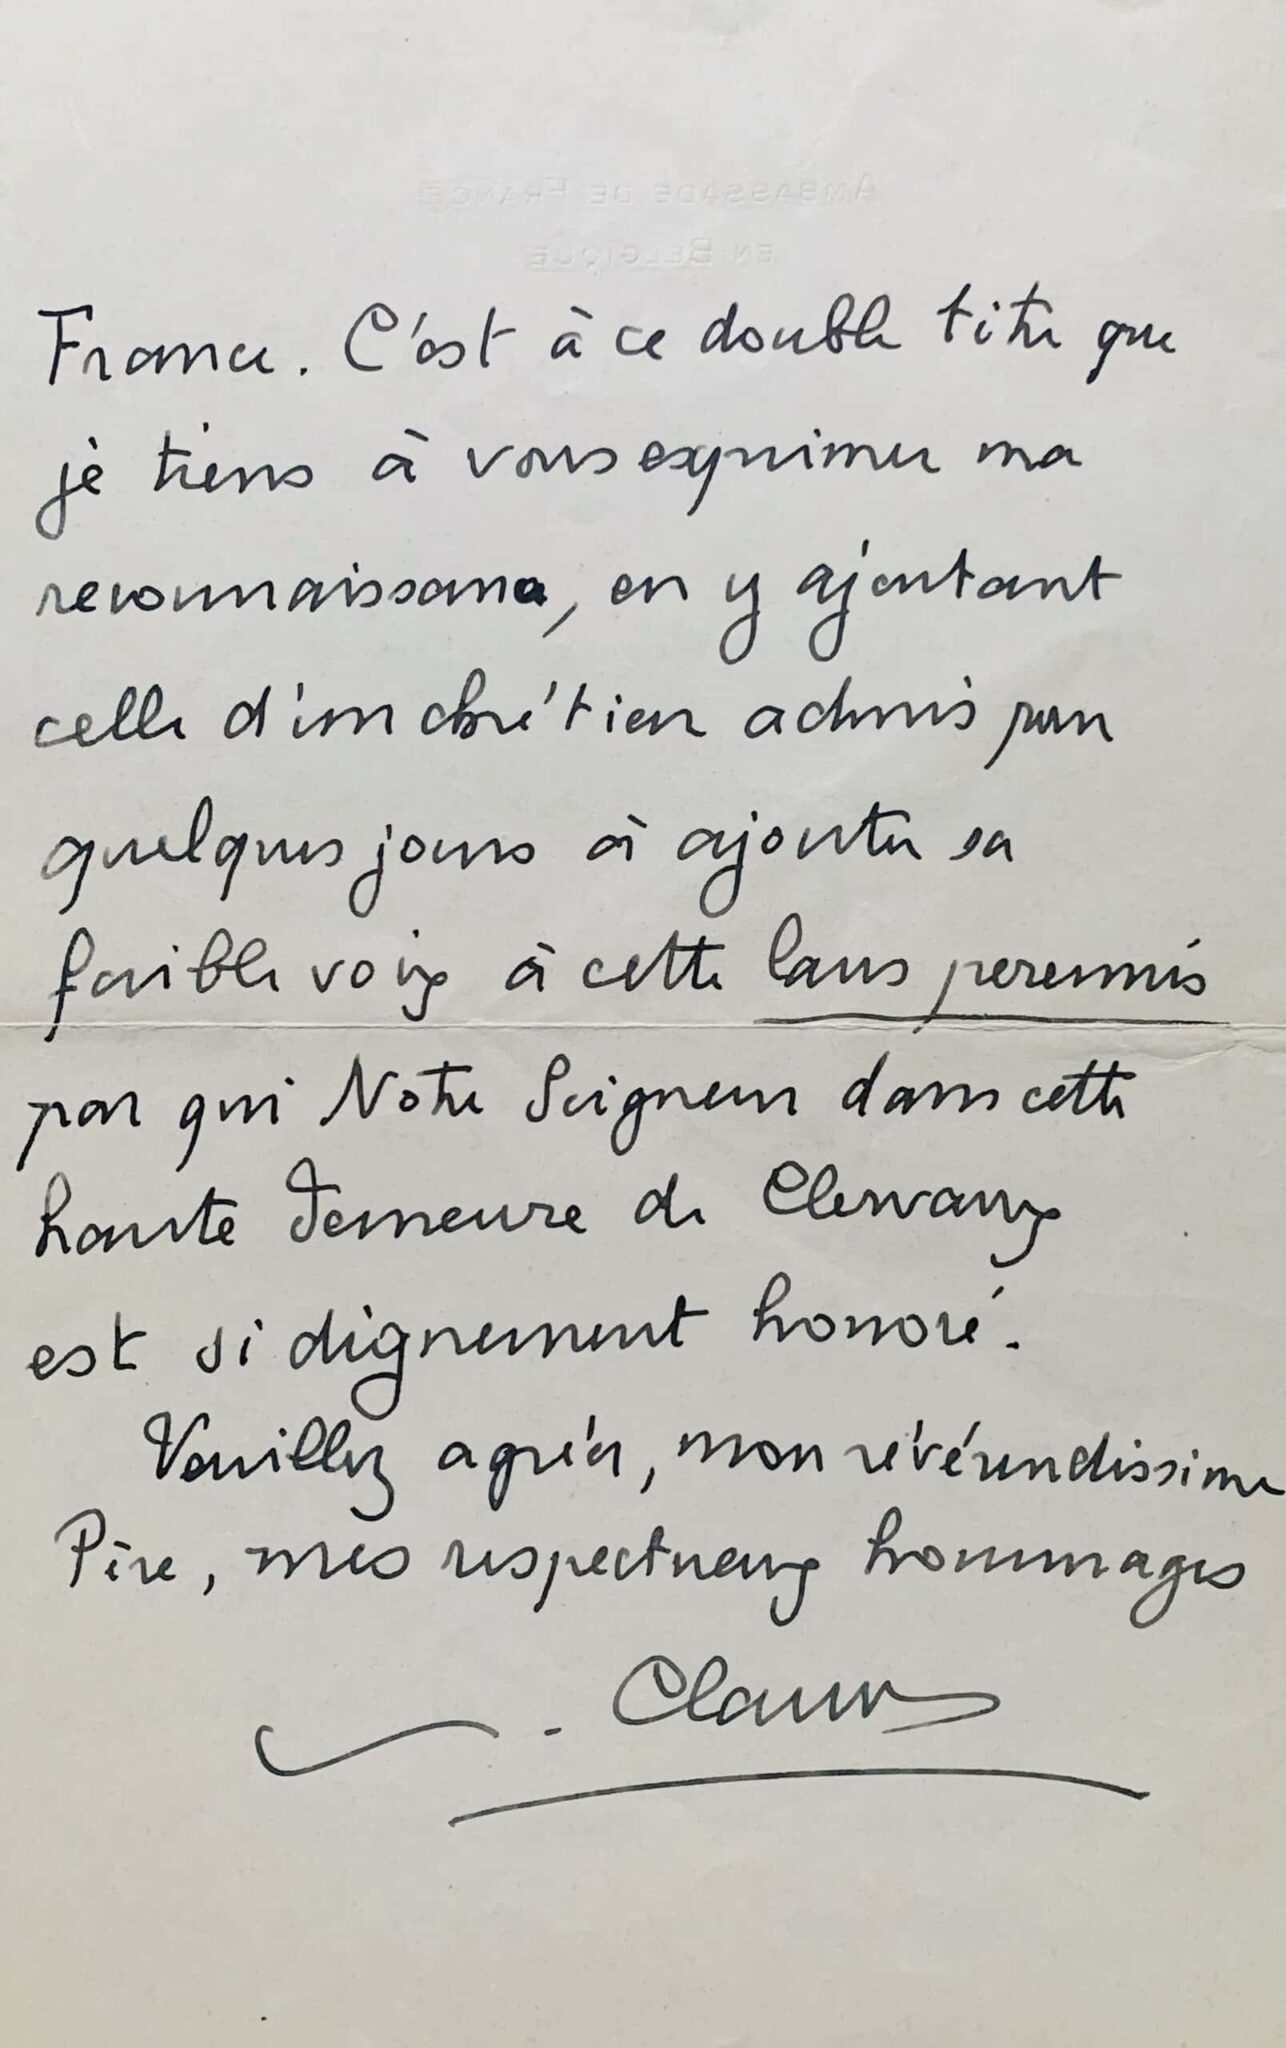 AMBASSADE DE FRANCE
EN BELGIQUE
France. C'est à ce double titre que
je tiens à vous exprimer ma
reconnaissance, en y ajoutant
celle d'un chrétien admis pour
quelques jours à ajouter sa
faible voix à cette laus perennis
par qui Notre Seigneur dans cette
haute demeure de Clervaux
est si dignement honoré.
Veuillez agréer, mon révérendissime
Père, mes respectueux hommages
. Claudel